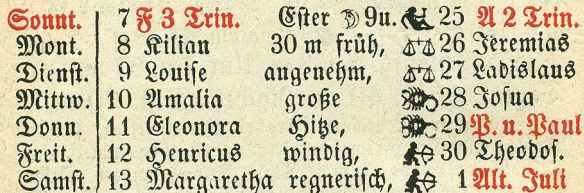 Sonnt. 7 F 3 Trin. Ester 9u. 25 A 2 Trin.
Mont. 8 Kilian 30 m früh, 26 Jeremias
Dienst. 9 Louise angenehm, 27 Ladislaus
Mittw. 10 Amalia große 28 Josua
Donn. 11 Eleonora Hitze, 29 P. u. Paul
Freit. 12 Henricus windig, 30 Theodos.
Samst. 13 Margaretha regnerisch, 1 Alt. Juli